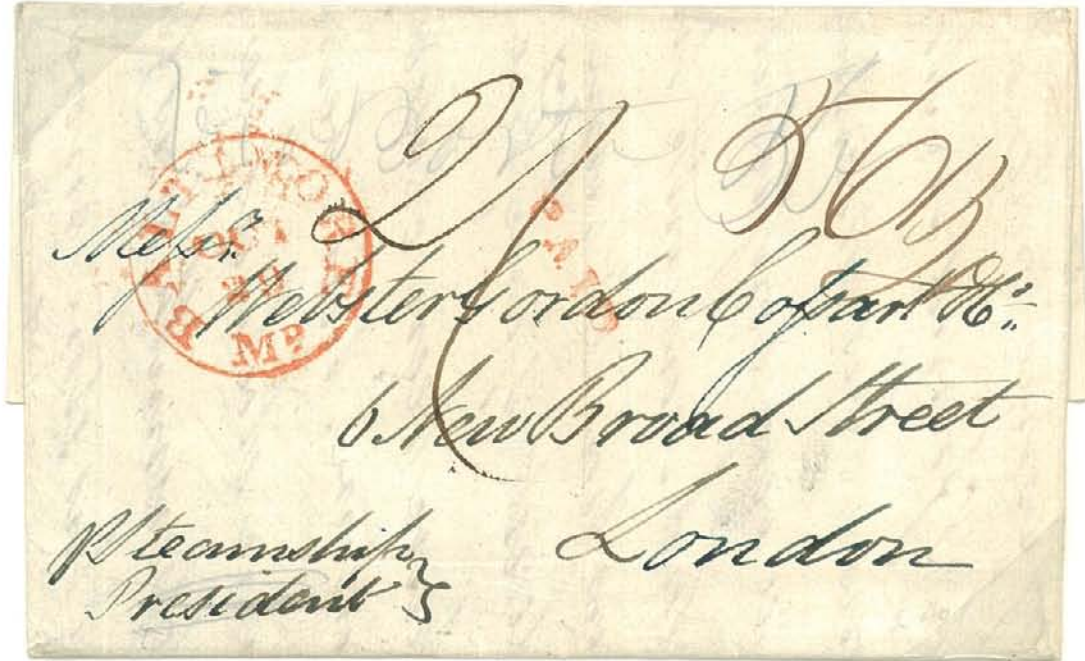 BALTIMORE Md
OCT
PAID
Messrs.
Webster Gordon Cossart & Co.
6 New Broad Street
London
p Steamship
President